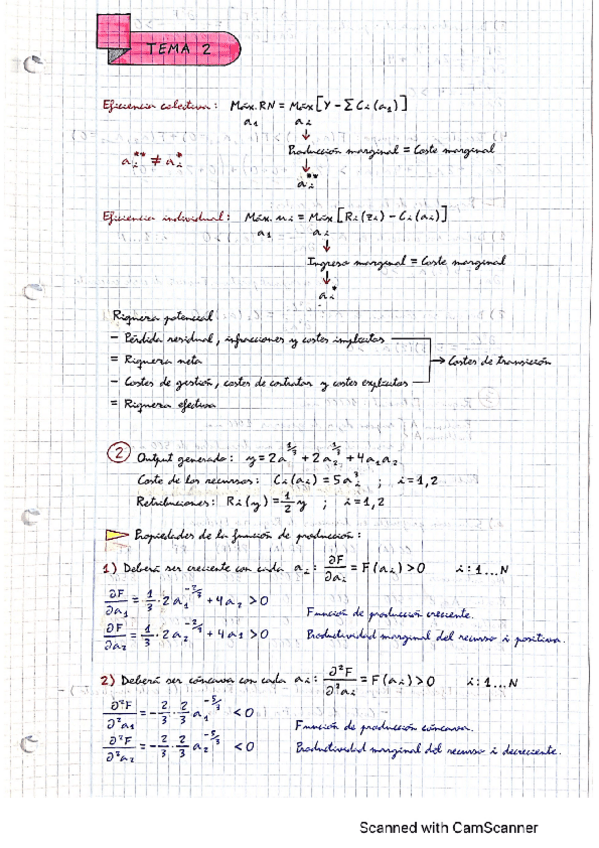 TEMA 2
Eficiencia colectiva: Máx. RN = Máx [Y - Σ Ci(a1)]
a1 ai
↓
Producción marginal = Coste marginal
ai** ≠ ai*
↓
ai**
Eficiencia individual: Máx. ui = Máx [Ri(zi) - Ci(ai)]
a1 ai
↓
Ingreso marginal = Coste marginal
↓
ai*
Riqueza potencial
- Pérdida residual, infracciones y costes implícitos
= Riqueza neta → Costes de transición
- Costes de gestión, costes de contratar y costes explícitos
= Riqueza efectiva
2 Output generado: y = 2a^1/3 + 2a2^1/3 + 4a1a2
Coste de los recursos: Ci(ai) = 5ai^3 ; i = 1,2
Retribuciones: Ri(y) = 1/2 y ; i = 1,2
Propiedades de la función de producción:
1) Deberá ser creciente con cada ai: ∂F/∂ai = F(ai) > 0 i: 1...N
∂F/∂a1 = 1/3 · 2a1^-2/3 + 4a2 > 0 Función de producción creciente.
∂F/∂a2 = 1/3 · 2a2^-2/3 + 4a1 > 0 Productividad marginal del recurso i positiva.
2) Deberá ser cóncava con cada ai: ∂²F/∂²ai = F(ai) > 0 i: 1...N
∂²F/∂²a1 = -2/3 · 2/3 a1^-5/3 < 0 Función de producción cóncava.
∂²F/∂²a2 = -2/3 · 2/3 a2^-5/3 < 0 Productividad marginal del recurso i decreciente.
Scanned with CamScanner